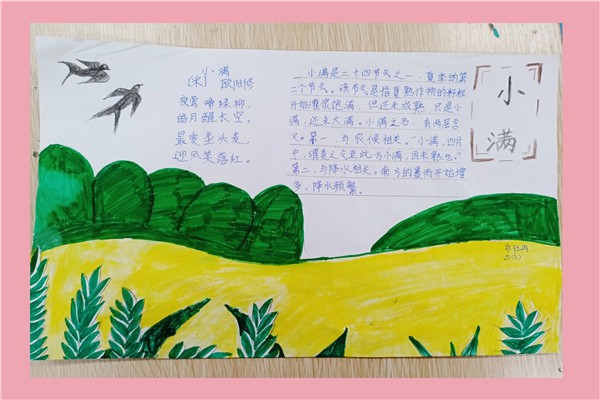 小满
〔宋〕 欧阳修
夜莺啼绿柳，
皓月醒长空。
最爱垄头麦，
迎风笑落红。
小满是二十四节气之一，夏季的第
二个节气。该节气是指夏熟作物的籽粒
开始灌浆饱满，但还未成熟，只是小
满，还未大满。小满之名，有两层含
义。第一，与农候相关。“小满，四月
中，谓麦之气至此方小满，因未熟也。”
第二，与降水相关。南方的暴雨开始增
多，降水频繁。
小
满